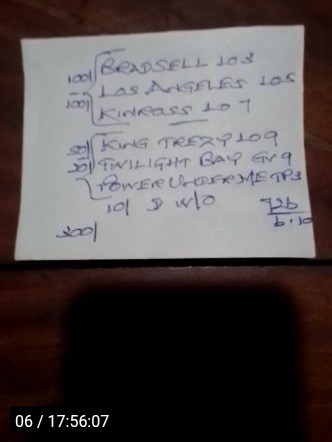 100/ BRADSELL 103
LOS ANGELES 105
100/ KINROSS 107
50/ KING TREZY 109
20/ TWILIGHT BAY GV9
POWER UNDER ME TP3
10/ D W/O
726
6.10
300/
06 / 17:56:07